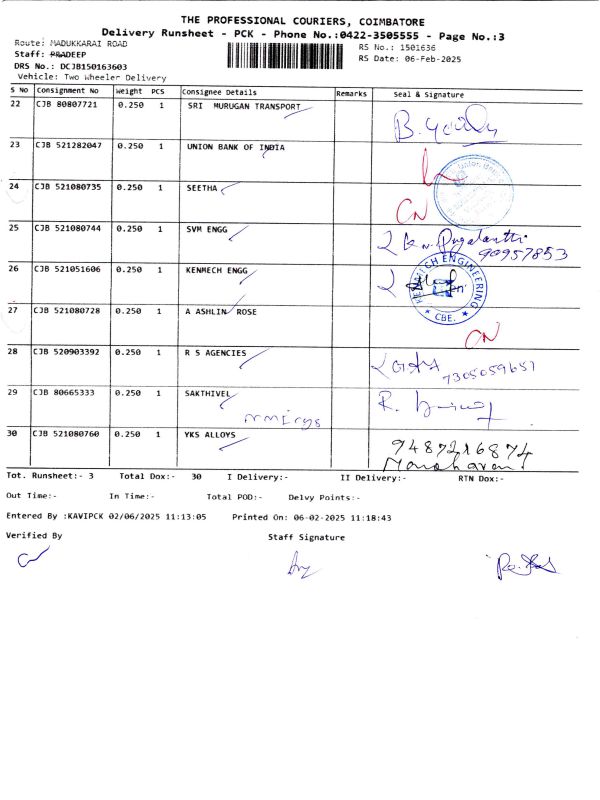 THE PROFESSIONAL COURIERS, COIMBATORE
Delivery Runsheet - PCK - Phone No.:0422-3505555 - Page No.:3
Route: MADUKKARAI ROAD
RS No.: 1501636
Staff: PRADEEP
RS Date: 06-Feb-2025
DRS No.: DCJB150163603
Vehicle: Two Wheeler Delivery
S No Consignment No Weight PCS Consignee Details Remarks Seal & Signature
22 CJB 80807721 0.250 1 SRI MURUGAN TRANSPORT
23 CJB 521282047 0.250 1 UNION BANK OF INDIA
24 CJB 521080735 0.250 1 SEETHA CN
25 CJB 521080744 0.250 1 SVM ENGG
90957853
26 CJB 521051606 0.250 1 KENMECH ENGG
KENMECH ENGINEERING
★ CBE. ★
27 CJB 521080728 0.250 1 A ASHLIN ROSE CN
28 CJB 520903392 0.250 1 R S AGENCIES
7305059657
29 CJB 80665333 0.250 1 SAKTHIVEL
30 CJB 521080760 0.250 1 YKS ALLOYS 9487216874
Manoharan
Tot. Runsheet:- 3 Total Dox:- 30 I Delivery:- II Delivery:- RTN Dox:-
Out Time:- In Time:- Total POD:- Delvy Points:-
Entered By :KAVIPCK 02/06/2025 11:13:05 Printed On: 06-02-2025 11:18:43
Verified By Staff Signature